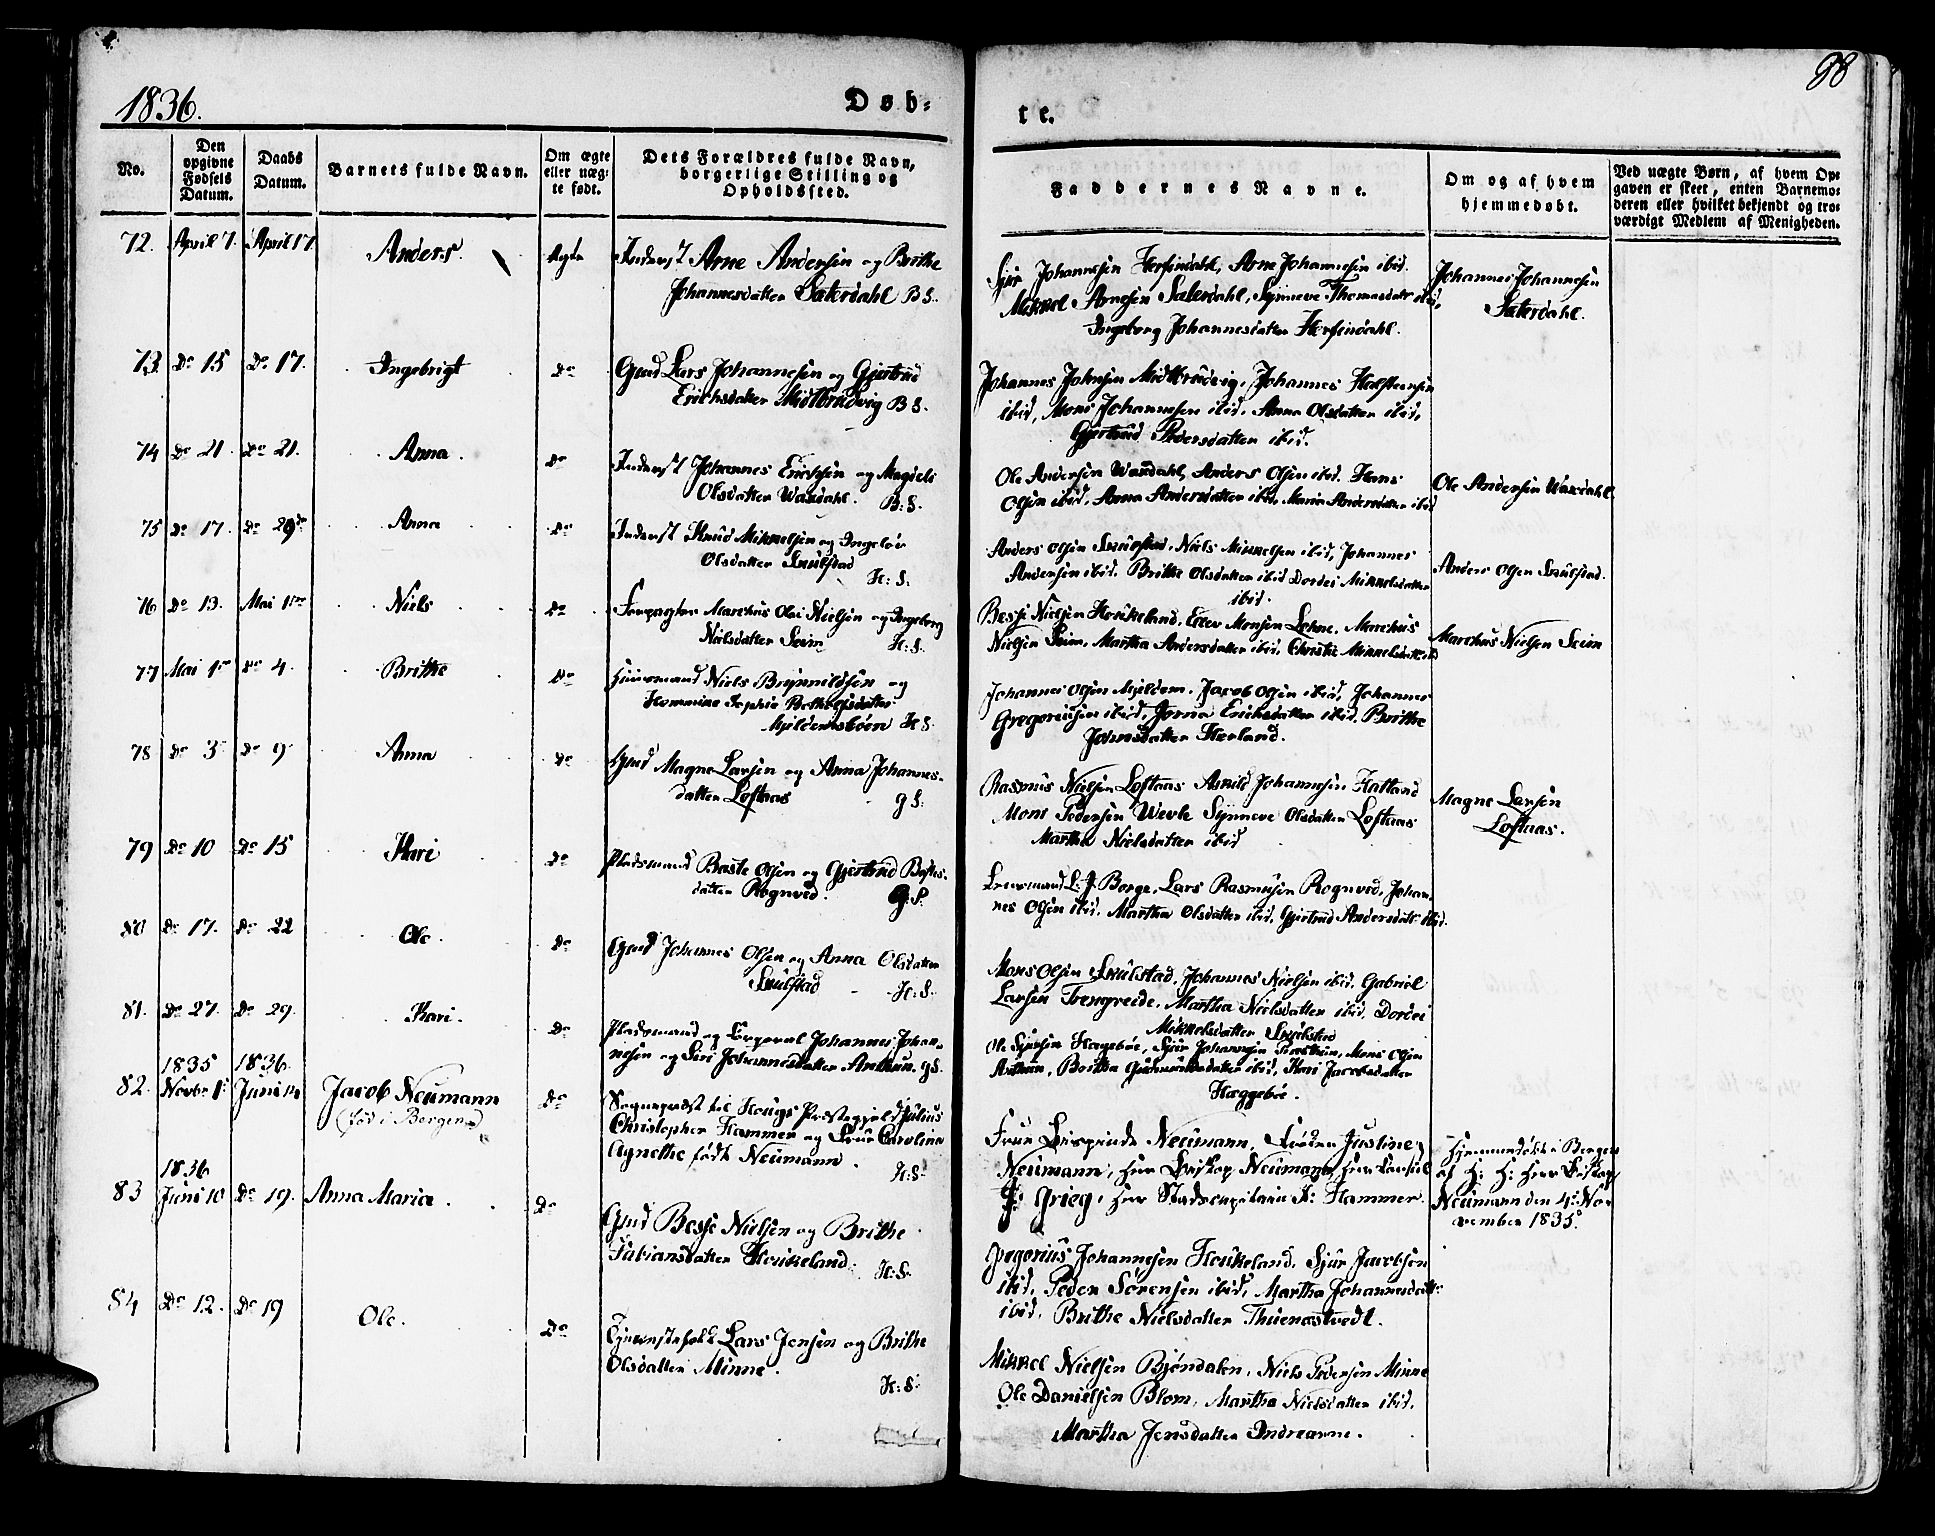 98
1836.
Døb-
te.
No.
Den opgivne Fødsels Datum.
Daabs Datum.
Barnets fulde Navn.
Om ægte eller uægte født.
Dets Forældres fulde Navn, borgerlige Stilling og Opholdssted.
Faddernes Navne.
Om og af hvem hjemmedøbt.
Ved uægte Børn, af hvem Opgaven er skeet, enten Barnemoderen eller hvilket bekjendt og troværdigt Medlem af Menigheden.
72. April 7. April 17. Anders. Ægte
Inderst Arne Andersen og Brithe
Johannesdatter Sæterdahl B S.
Sjur Johannesen Herfindahl, Arne Johannesen ibid.
Mikkel Arnesen Sæterdahl, Synneve Thomasdatr ibid,
Ingeborg Johannesdatter Herfindahl.
Johannes Johannesen
Sæterdahl.
73. Do 15 Do 17. Ingebrigt Do
Gmd Lars Johannesen og Gjertrud
Erichsdatter Midtbrudvig B S.
Johannes Johnsen Midtbrudvig, Johannes Halsteensen
ibid, Mons Johannesen ibid, Anna Olsdatter ibid,
Gjertrud Pedersdatter ibid.
74 Do 21. Do 21. Anna. Do
Inderst Johannes Erichsen og Magdeli
Olsdatter Wardahl. B: S.
Ole Andersen Wardahl, Anders Olsen ibid. Hans
Olsen ibid, Anna Andersdatter ibid, Maria Andersdatter ibid
Ole Andersen Wardahl
75 Do 17. Do 29de Anna Do
Inderst Knud Mikkelsen og Ingebor
Olsdatter Skulstad H: S.
Anders Olsen Skulstad, Niels Mikkelsen ibid, Johannes
Andersen ibid. Brithe Olsdatter ibid Dordei Mikkelsdatter
ibid.
Anders Olsen Skulstad.
76 Do 13. Mai 1ste Niels Do
Forpagter Marchus Olai Nielsen og Ingeborg
Nielsdatter Seim H: S.
Besse Nielsen Houkeland, Monsen Lehne, Marchus
Nielsen Seim, Martha Andersdatter ibid, Christi Mikkelsdatter
Marchus Nielsen Seim
77 Mai 1ste Do 4. Brithe Do
Huusmand Niels Brynnildsen og
Sophie
Mjeldemsboen H: S.
Johannes Olsen Mjeldem, Jacob Olsen ibid, Johannes
Gregoriusen ibid, Erichsdatter ibid, Brithe
Johnsdatter Herland.
78 Do 3 Do 9. Anna Do
Gmd Magne Larsen og Anna Johannes-
datter Loftaas G S:
Rasmus Nielsen Loftaas Johannesen Hatland
Mons Pedersen Synneve Olsdatter Loftaas
Martha Nielsdatter ibid
Magne Larsen
Loftaas.
79 Do 10 Do 15 Kari Do
Pladsmand Baste Olsen og Gjertrud Bastes-
datter Rognved. G: S.
Lensmand L: J. Borge, Lars Rasmusen Rognved, Johan-
nes Olsen ibid. Martha Olsdatter ibid, Gjertrud Andersdatr ibid.
80 Do 17. Do 22 Ole Do
Gmd Johannes Olsen og Anna Olsdatter
Skulstad H: S.
Mons Olsen Skulstad, Johannes Nielsen ibid. Gabriel
Larsen Tengreide, Martha Nielsdatter ibid, Dordei
Mikkelsdatter Skulstad
81. Do 27. Do 29. Kari. Do
Pladsmand og Corporal Johannes Johan-
nesen og Siri Johannesdatter Arthun. G S.
Ole Sjursen Haggeboe, Sjur Johannesen Mons Olsen
Arthun, Britha Gunnarsdatter ibid, Kari Jacobsdatter
Haggeboe.
1835 1836.
82. Novbr 1: Juni Jacob Neumann Do
(fød i Bergen)
Sognepræst til Hougs Præstegjeld Julius
Christopher Hammer og Frue Carolina
Agnethe født Neumann. H: S.
Frue Bispinde Neumann, Frøken Justine
Neumann, Herr Biskop Neumann, Herr Consul
J: Grieg, Herr Stadscapitain F: Hammer.
Hjemmedøbt i Bergen
af H: H: Herr Biskop
Neumann den 4de No-
vember 1835.
1836
83 Juni 10 Do 19. Anna Maria. Do
Gmd Besse Nielsen og Brithe
Fabiansdatter Houkeland. H: S.
Johannesen Houkeland, Sjur Jacobsen
ibid, Peder Sørensen ibid, Martha Johannesdatr
ibid, Brithe Nielsdatter Thuenæstvedt.
84 Do 12. Do 19 Ole. Do
Tjenestefolk Lars Jensen og Brithe
Olsdatter Minne. H: S.
Mikkel Nielsen Bjøndalen, Niels Pedersen Minne
Ole Danielsen Blom, Martha Nielsdatter ibid,
Martha Jensdatter Indrearne.